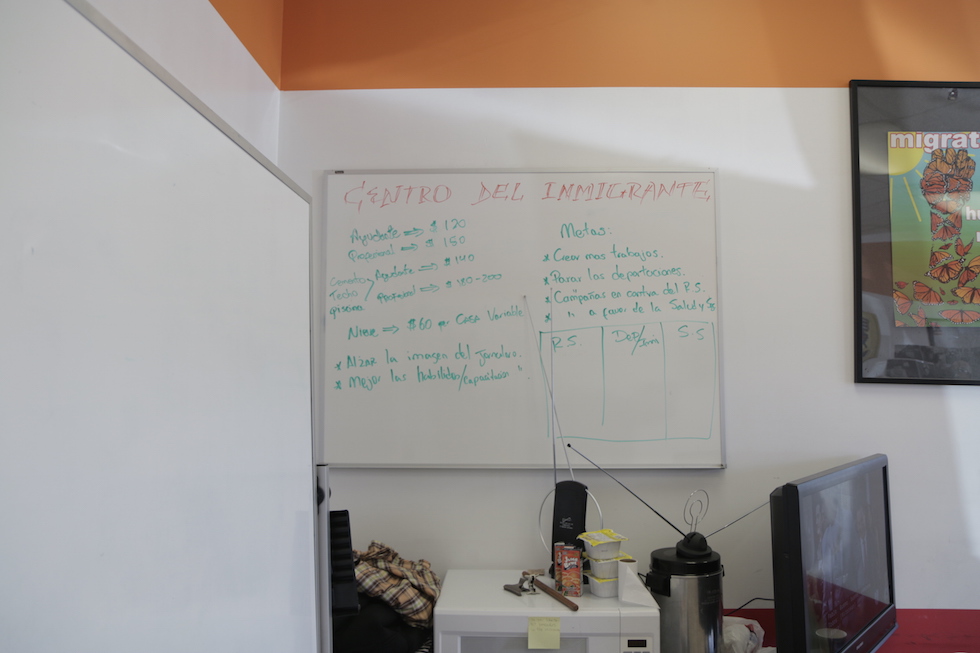 CENTRO DEL INMIGRANTE
Ayudante ⇒ $ 120
Profesional ⇒ $ 150
Cemento
Techo
Ayudante ⇒ $ 140
Profesional ⇒ $ 180-200
Nieve ⇒ $60 per CASA Variable
* Alzar la imagen del Jornalero.
* Mejor las habilidades/capacitacion ".
Metas:
* Crear mas trabajos.
* Parar las deportaciones.
* Campañas en contra del R.S.
* " a favor de la Salud y
R.S.
S.S
migrat
hu